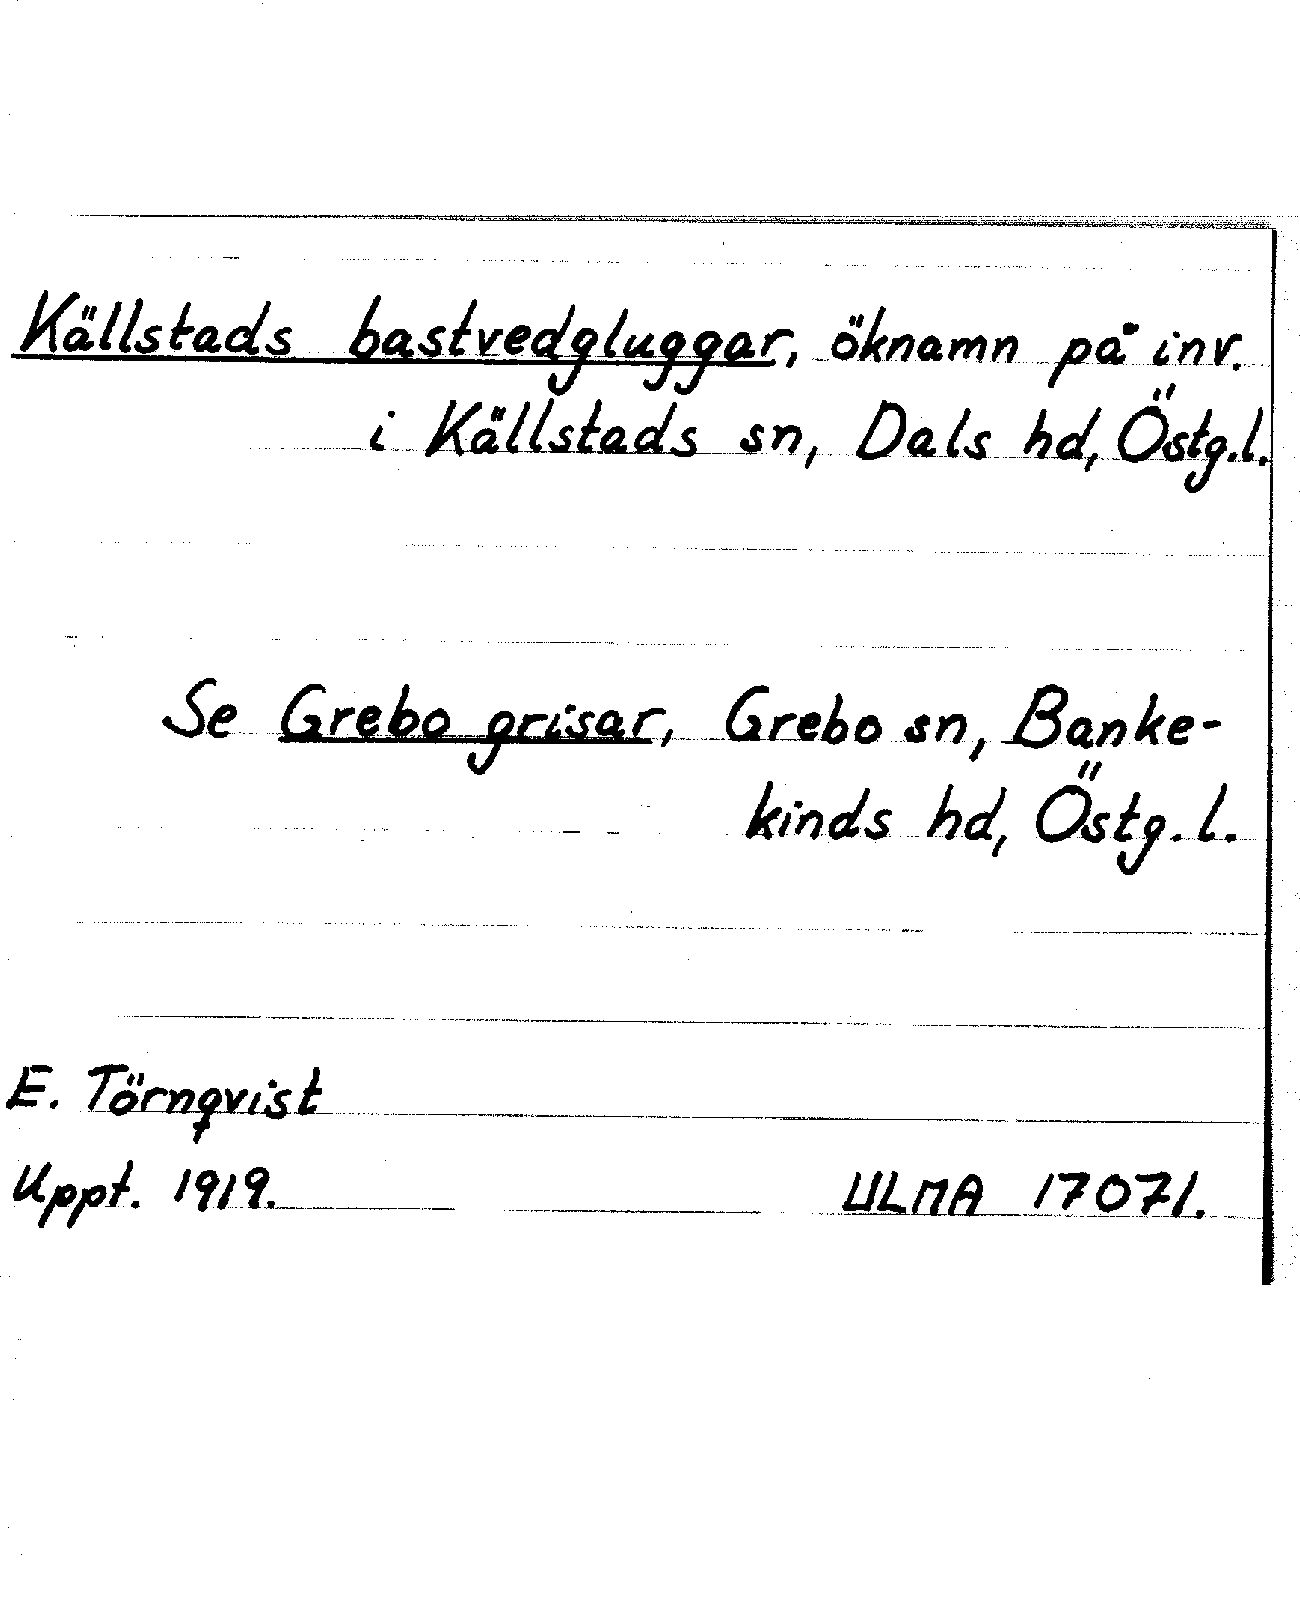 Källstads bastvedgluggar, öknamn på inv.
i Källstads sn, Dals hd, Östg.l.
Se Grebo grisar, Grebo sn, Banke-
kinds hd, Östg.l.
E. Törnqvist
Uppt. 1919.
ULMA 17071.